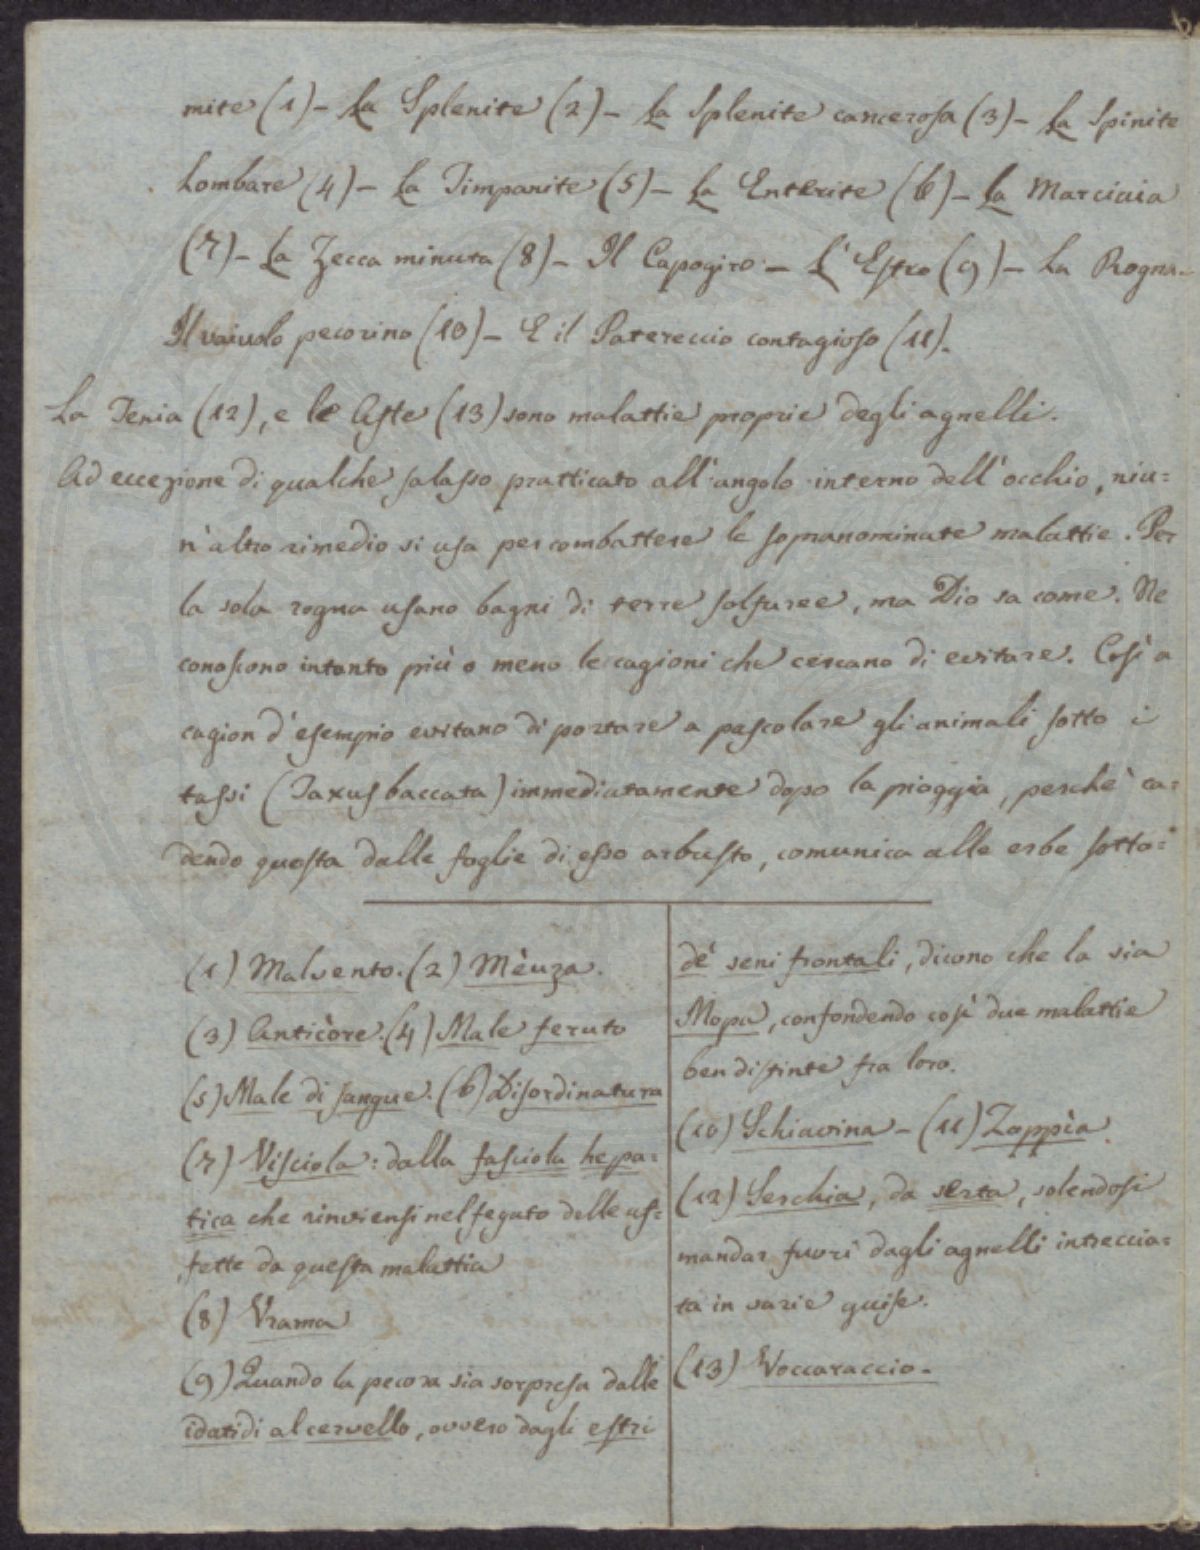 mite (1) – La Splenite (2) – La Splenite cancerosa (3) – La Spinite
Lombare (4) – La Timpanite (5) – La Enterite (6) – La Marciaia
(7) – La Zecca minuta (8) – Il Capogiro – L'Estro (9) – La Rogna –
Il vaiuolo pecorino (10) – E il Patereccio contagioso (11).
La Tenia (12), e le Afte (13) sono malattie proprie degli agnelli.
Ad eccezione di qualche salasso pratticato all'angolo interno dell'occhio, niu=
n'altro rimedio si usa per combattere le sopranominate malattie. Per
la sola rogna usano bagni di terre solfuree, ma Dio sa come. Ne
conoscono intanto più o meno le cagioni che cercano di evitare. Così a
cagion d'esempio evitano di portare a pascolare gli animali sotto i
tassi (Taxus baccata) immediatamente dopo la pioggia, perchè ca=
dendo questa dalle foglie di esso arbusto, comunica alle erbe sotto=
(1) Malvento. (2) Mèuza.
(3) Anticòre. (4) Male feruto
(5) Male di sangue. (6) Disordinatura
(7) Visciola: dalla fasciola hepa=
tica che rinviensi nel fegato delle af=
fette da questa malattia
(8) Vrama
(9) Quando la pecora sia sorpresa dalle
idatidi al cervello, ovvero dagli estri
de' seni frontali, dicono che la sia
Mopa, confondendo così due malattie
ben distinte fra loro.
(10) Schiavina – (11) Zoppìa
(12) Serchia, da serta, solendosi
mandar fuori dagli agnelli intreccia=
ta in varie guise.
(13) Voccaraccio.